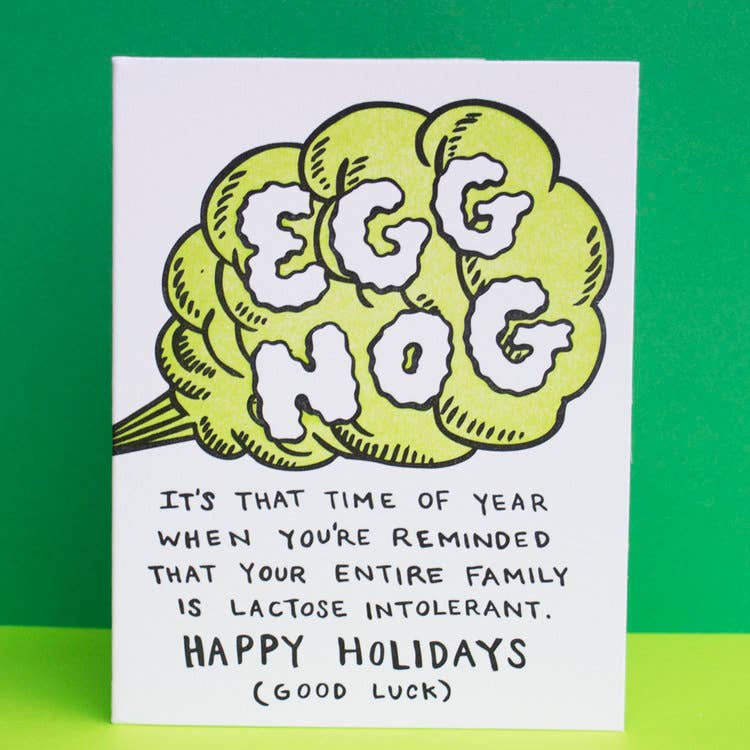 EGG
NOG
IT'S THAT TIME OF YEAR
WHEN YOU'RE REMINDED
THAT YOUR ENTIRE FAMILY
IS LACTOSE INTOLERANT.
HAPPY HOLIDAYS
(GOOD LUCK)